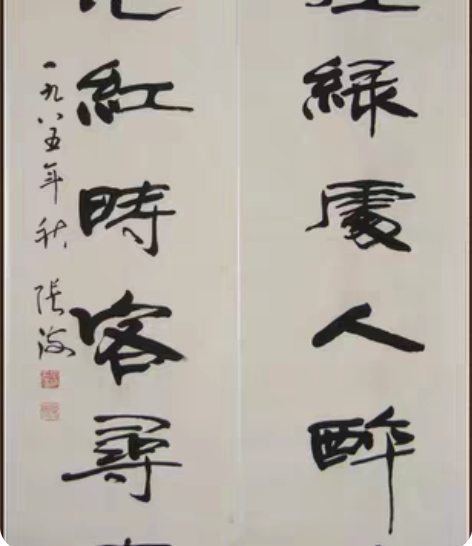 綠處人醉
紅時客尋
一九八五年秋 張海